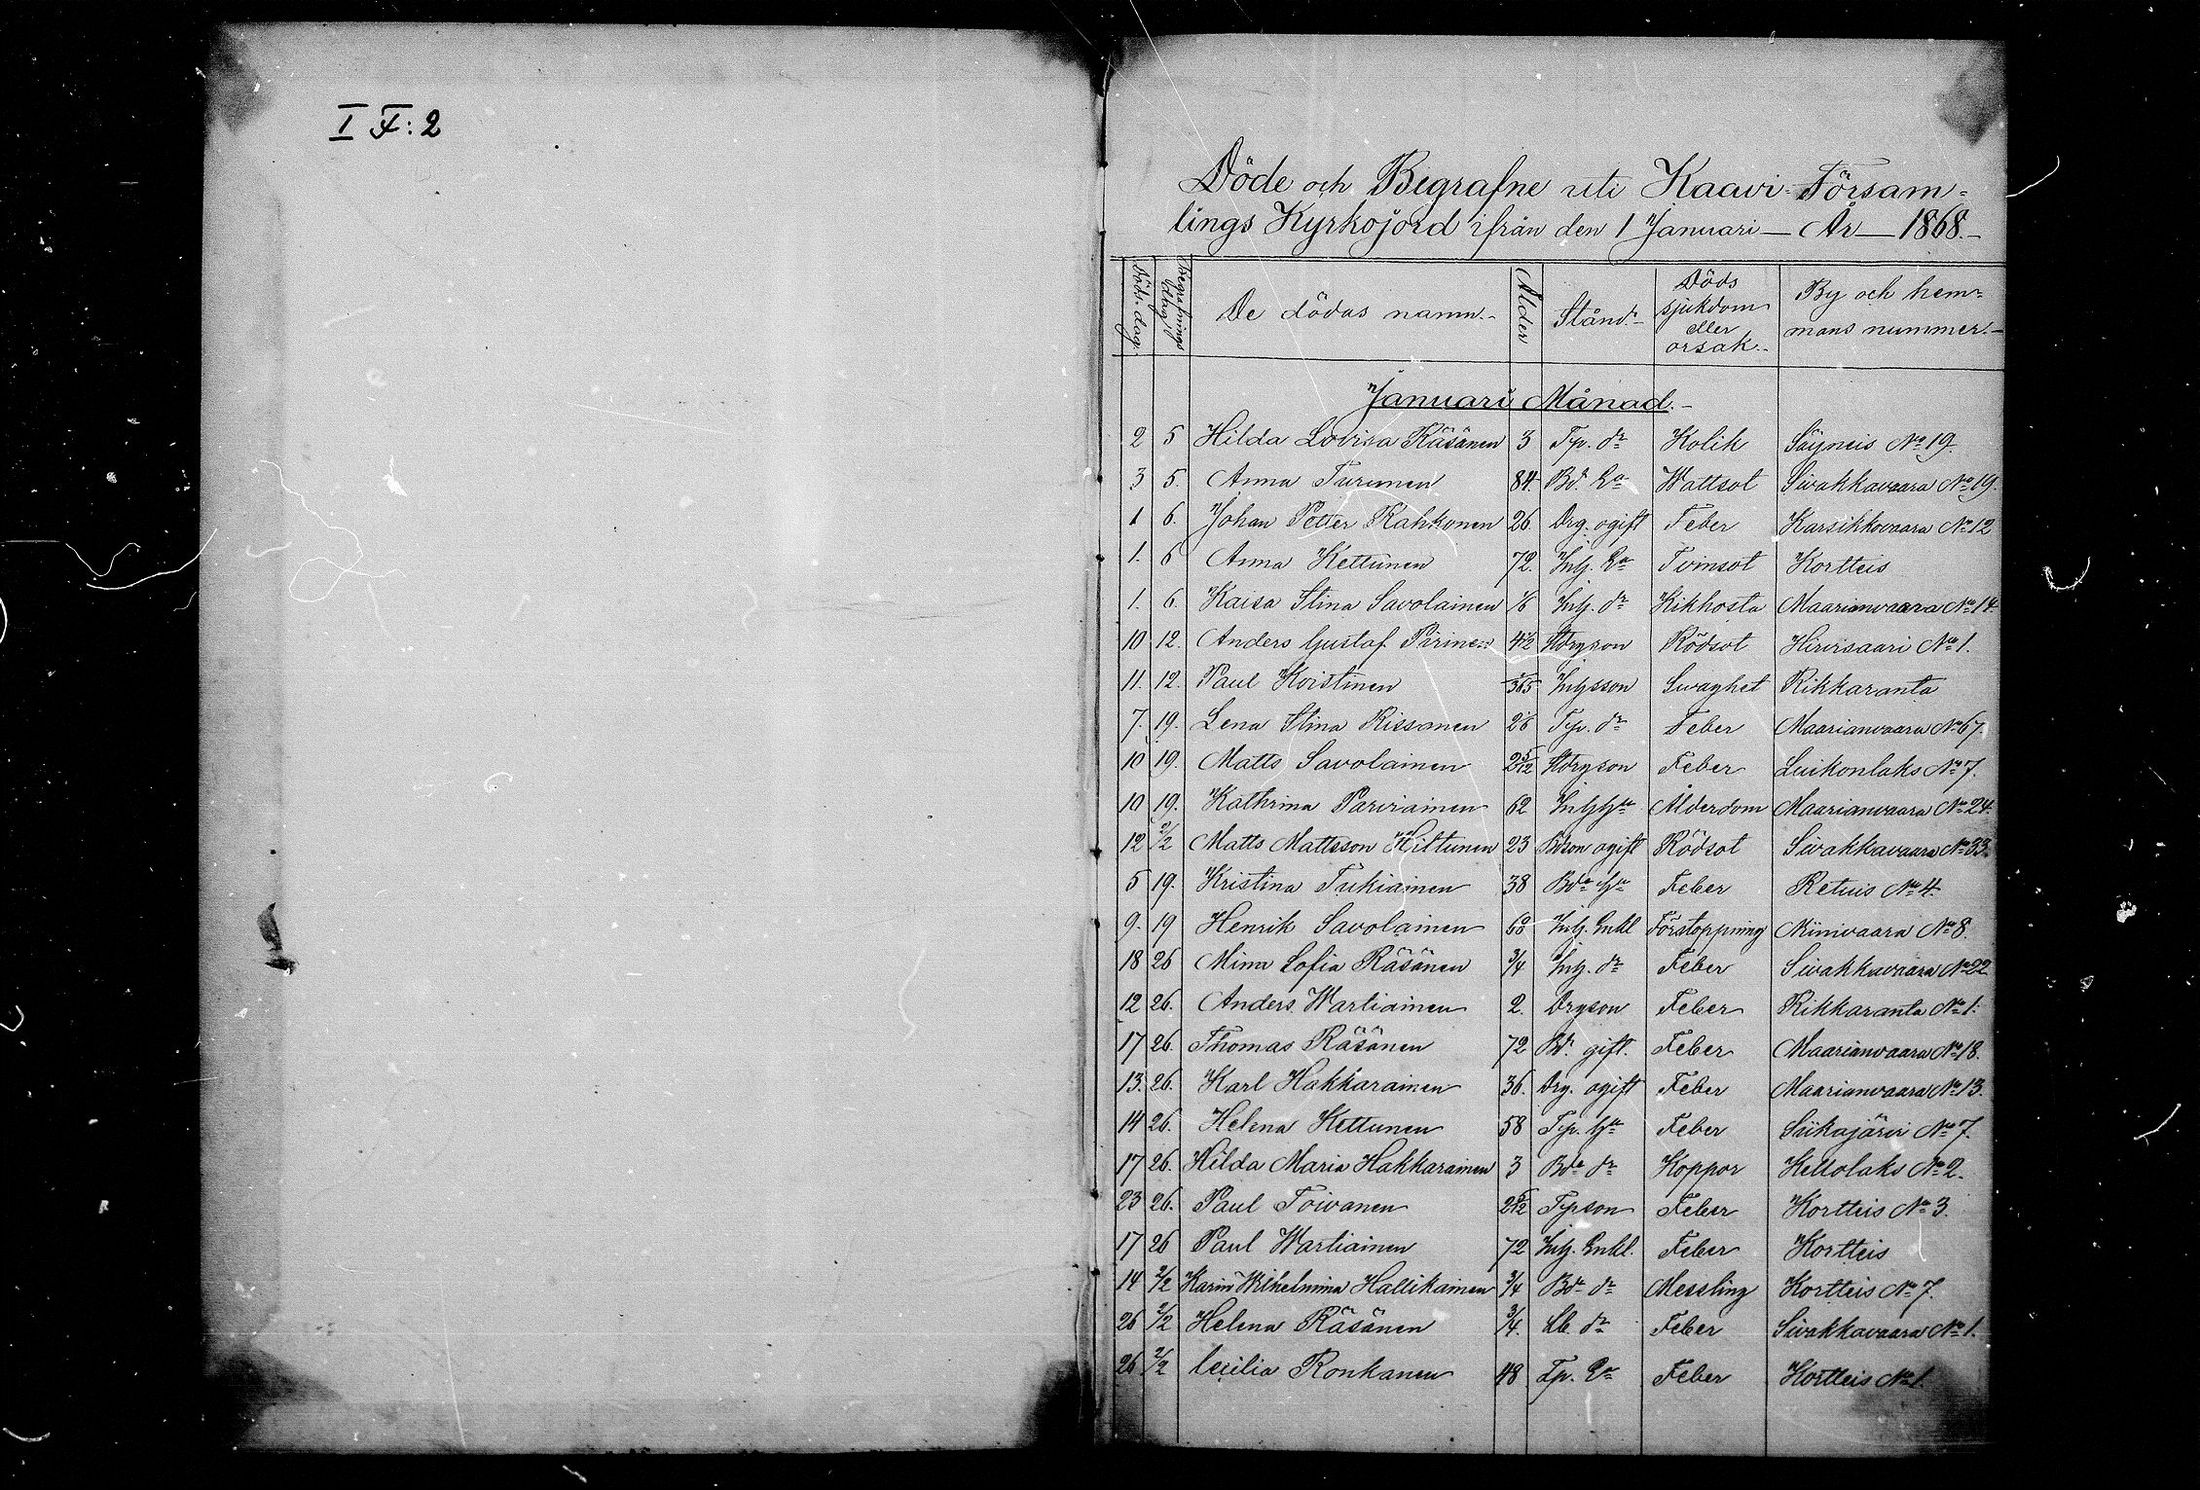 I F:2
Döde och Begrafne uti Kaavi Försam=
lings Kyrkojord ifrån den 1 Januari — År — 1868.
Döds-dag. Begrafnings dag. De dödas namn. Ålder Stånd. Döds sjukdom eller orsak. By och hem=mans nummer.
Januari Månad.
2 5 Hilda Lovisa Räsänen 3 Tp. dr Kolik Säyneis No 19.
3 5. Anna Turunen 84. Bd. Ea Wattsot Sivakkavaara No 19.
1 6. Johan Petter Kahkonen 26 Drg. ogift Feber Karsikkovaara No 12
1. 6 Anna Kettunen 72. Inh. Ea Tvinsot Kortteis
1. 6. Kaisa Stina Savolainen 1/6 Inh. dr Kikhosta Maarianvaara No 14.
10 12. Anders Gustaf Pirinen Rödsot Hirvisaari No 1.
11. 12. Paul Koistinen Inhsson Svaghet Rikkaranta
7. 19. Lena Stina Rissanen Tp. dr Feber Maarianvaara No 67.
10 19. Matts Savolainen 2 5/12 Feber Luikonlaks No 7.
10 19. Kathrina Parviainen 62 Ålderdom Maarianvaara No 24.
12 2/2 Matts Mattsson Hiltunen 23 Bdson ogift Rödsot Sivakkavaara No 33.
5 19. Kristina Tukiainen 38 Feber Retuis No 4.
9. 19 Henrik Savolainen 68 Inh. Enkl Förstoppning Niinivaara No 8.
18 26 Mina Sofia Räsänen 3/4 Inh. dr Feber Sivakkavaara No 22
12 26. Anders Wartiainen 2. Drgson Feber Rikkaranta No 1.
17 26. Thomas Räsänen 72 Bd. gift. Feber Maarianvaara No 18.
13. 26. Karl Hakkarainen 36. Drg. ogift Feber Maarianvaara No 13.
14 26. Helena Kettunen 58 Tp. Feber Siikajärvi No 7.
17 26. Hilda Maria Hakkarainen 3 Bde dr Koppor Keltolaks No 2.
23 26. Paul Toivanen 2 5/12 Tpson Feber Kortteis No 3.
17 26 Paul Wartiainen 72 Inh. Enkl. Feber Kortteis
14 2/2 Karin Wilhelmina Hallikainen 3/4 Bde dr Messling Kortteis No 7.
26 2/2 Helena Räsänen 3/4. Lb. dr Feber Sivakkavaara No 1.
26 2/2 Cecilia Ronkanen 48 Tp. Ea Feber Kortteis No 1.